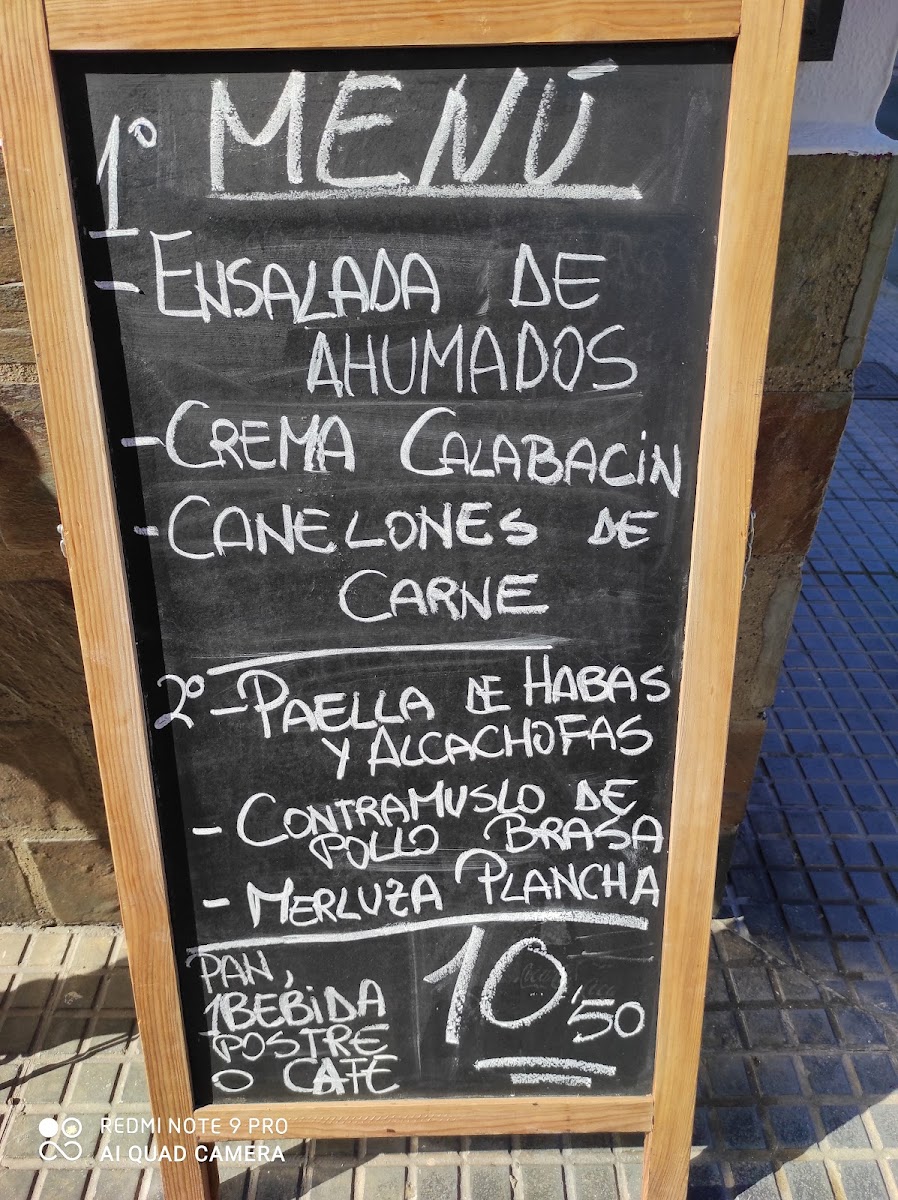 MENÚ
1º
- ENSALADA DE
AHUMADOS
- CREMA CALABACIN
- CANELONES DE
CARNE
2º - PAELLA DE HABAS
Y ALCACHOFAS
- CONTRAMUSLO DE
POLLO BRASA
- MERLUZA PLANCHA
PAN,
1 BEBIDA
POSTRE
O CAFE
10,50
REDMI NOTE 9 PRO
AI QUAD CAMERA